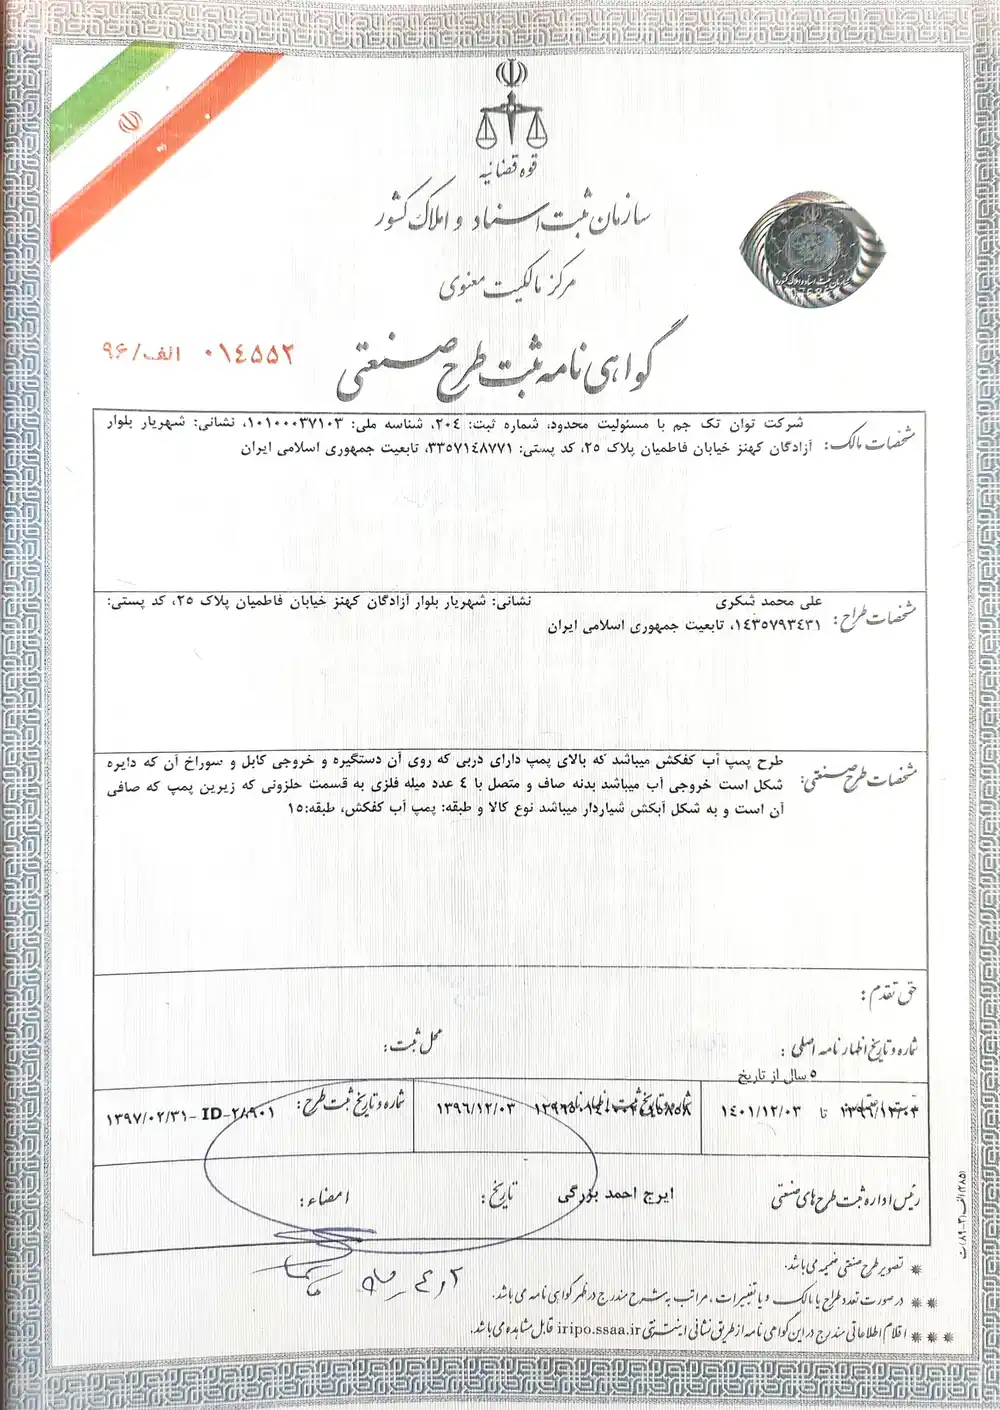 قوه قضائیه
سازمان ثبت اسناد و املاک کشور
مرکز مالکیت معنوی
گواهی نامه ثبت طرح صنعتی
۰۱٤٥٥٢ الف/۹۶
مشخصات مالک: شرکت توان تک جم با مسئولیت محدود، شماره ثبت: ۲۰٤، شناسه ملی: ۱۰۱۰۰۰۳۷۱۰۳، نشانی: شهریار بلوار
آزادگان کهنز خیابان فاطمیان پلاک ۲۵، کد پستی: ۳۳۵۷۱٤۸۷۷۱، تابعیت جمهوری اسلامی ایران
مشخصات طراح: علی محمد شکری نشانی: شهریار بلوار آزادگان کهنز خیابان فاطمیان پلاک ۲۵، کد پستی:
۱٤۳۵۷۹۳٤۳۱، تابعیت جمهوری اسلامی ایران
مشخصات طرح صنعتی: طرح پمپ آب کفکش میباشد که بالای پمپ دارای دربی که روی آن دستگیره و خروجی کابل و سوراخ آن که دایره
شکل است خروجی آب میباشد بدنه صاف و متصل با ٤ عدد میله فلزی به قسمت حلزونی که زیرین پمپ که صافی
آن است و به شکل آبکش شیاردار میباشد نوع کالا و طبقه: پمپ آب کفکش، طبقه:۱۵
حق تقدم:
شماره و تاریخ اظهارنامه اصلی: محل ثبت:
۵ سال از تاریخ
۱۳۹۶/۱۲/۰۳ تا ۱٤۰۱/۱۲/۰۳
شماره و تاریخ ثبت اظهارنامه: ۱۳۹۶/۱۲/۰۳
شماره و تاریخ ثبت طرح: ۱۳۹۷/۰۲/۳۱- ID-۲۸۹۰۱
رئیس اداره ثبت طرح‌های صنعتی ایرج احمد بورگی تاریخ: امضاء:
* تصویر طرح صنعتی ضمیمه می‌باشد.
** در صورت تعدد طراح یا مالک و یا تغییرات، مراتب به شرح مندرج در ظهر گواهی نامه می باشد.
*** اقلام اطلاعاتی مندرج در این گواهی نامه از طریق نشانی اینترنتی iripo.ssaa.ir قابل مشاهده می باشد.